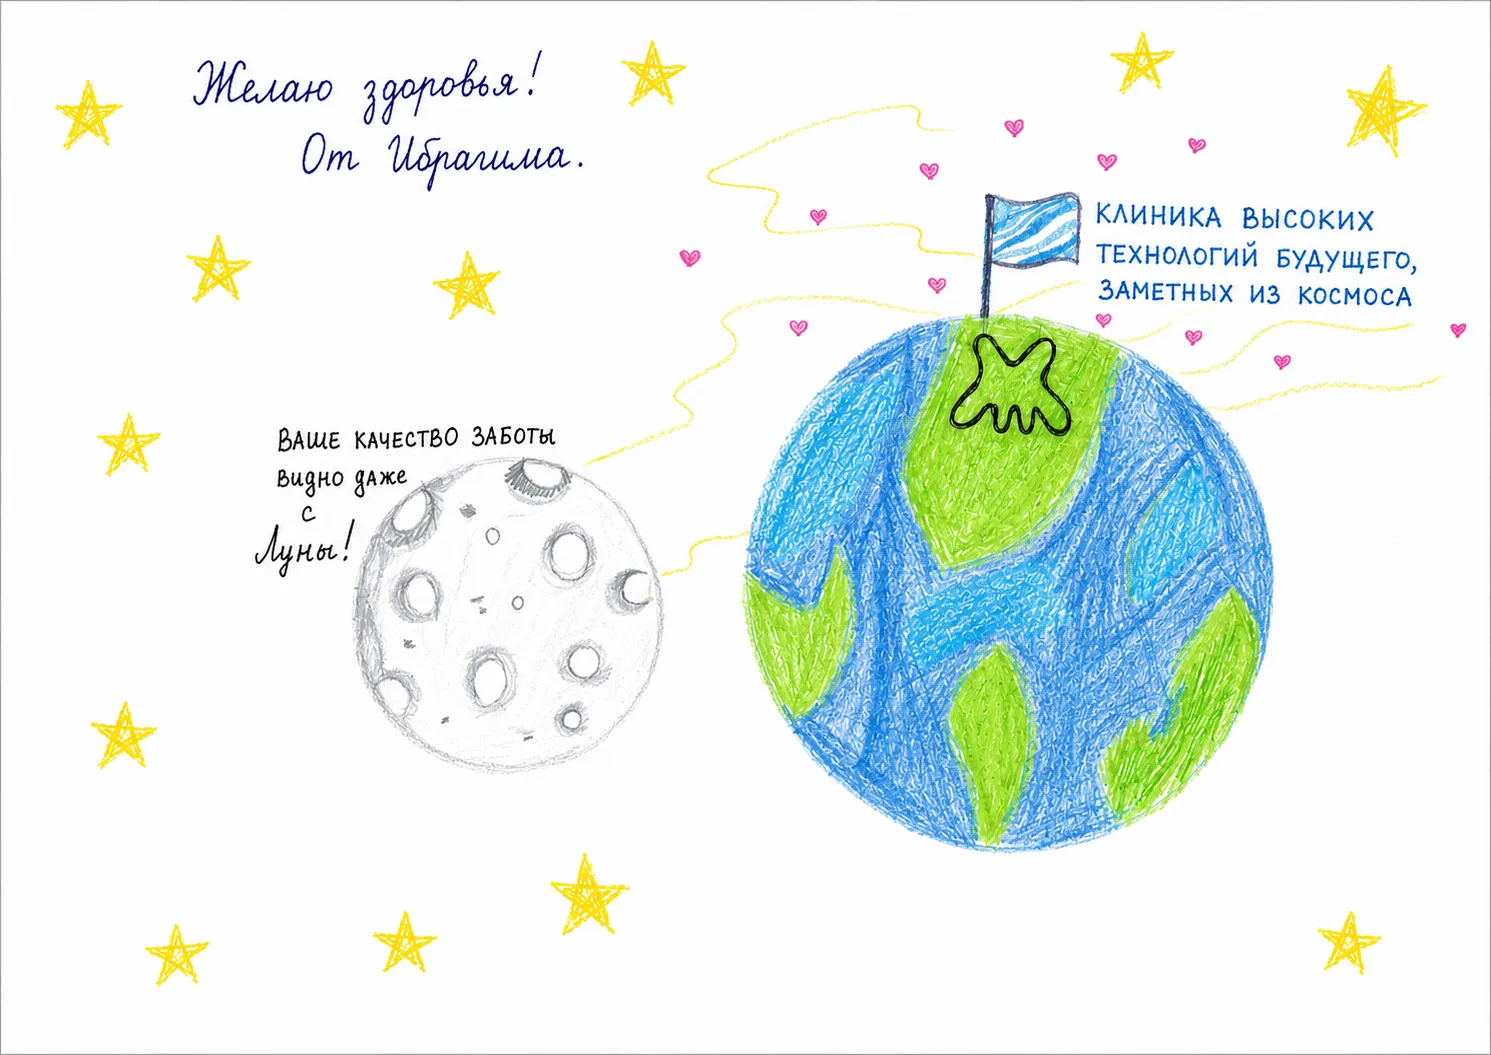 Желаю здоровья!
От Ибрагима.
КЛИНИКА ВЫСОКИХ
ТЕХНОЛОГИЙ БУДУЩЕГО,
ЗАМЕТНЫХ ИЗ КОСМОСА
ВАШЕ КАЧЕСТВО ЗАБОТЫ
видно даже
с
Луны!